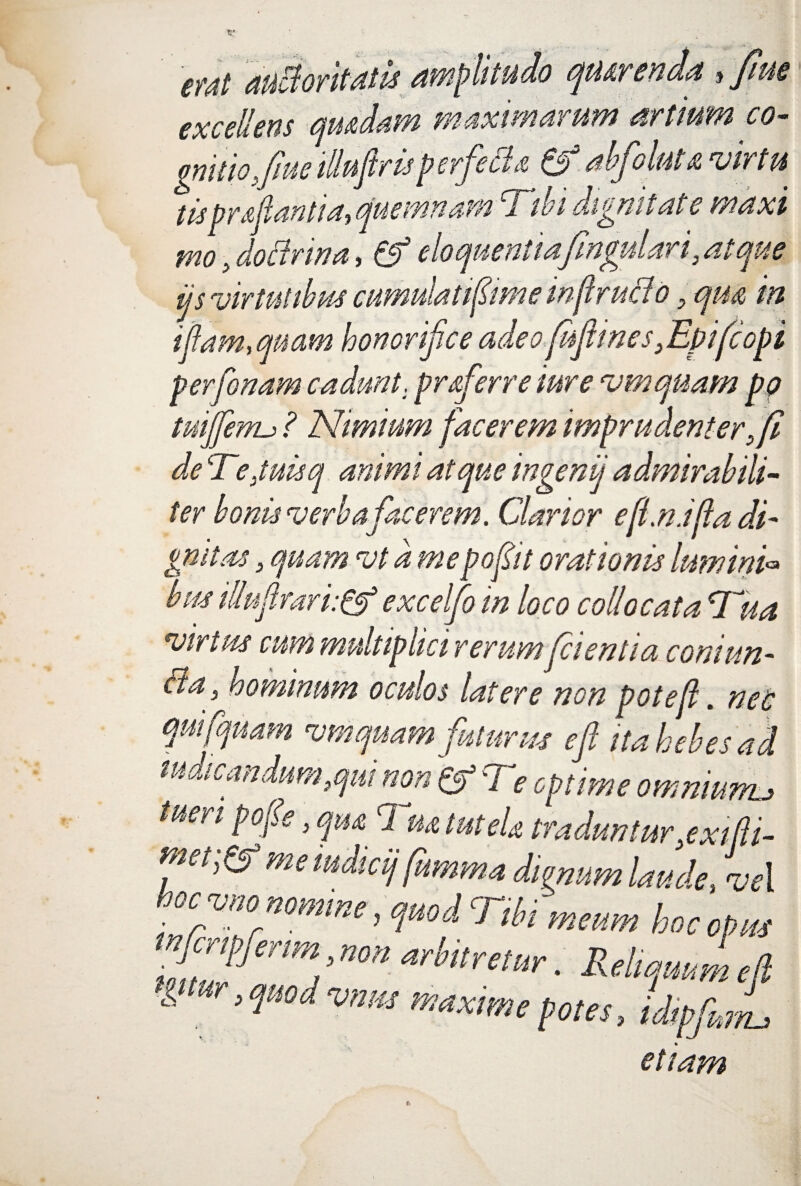 erat auctoritatis amplitudo quærenda, ſiue
excellens quædam maximarum artium co-
gnitio, ſiue illuſtris perfectæ & abſolutæ virtu
tis præſtantia, quemnam Tibi dignitate maxi
mo, doctrina, & eloquentia ſingulari, atque
ijs virtutibus cumulatißime inſtructo, quæ in
iſtam, quam honorifice adeo ſuſtines, Epiſcopi
perſonam cadunt, præferre iure vmquam po
tuiſſem? Nimium facerem imprudenter, ſi
de Te, tuisq animi atque ingenij admirabili-
ter bonis verba facerem. Clarior eſt.n.iſta di-
gnitas, quam vt à me poßit orationis lumini-
bus illuſtrari: & excelſo in loco collocata Tua
virtus cum multiplici rerum ſcientia coniun-
cta, hominum oculos latere non poteſt. nec
quiſquam vmquam futurus eſt ita hebes ad
iudicandum, qui non & Te optime omnium
tueri poße, quæ Tuæ tutelæ traduntur, exiſti-
met; & me iudicij ſumma dignum laude, vel
hoc vno nomine, quod Tibi meum hoc opus
inſcripſerim, non arbitretur. Reliquum eſt
igitur, quod vnus maxime potes, idipſum
etiam